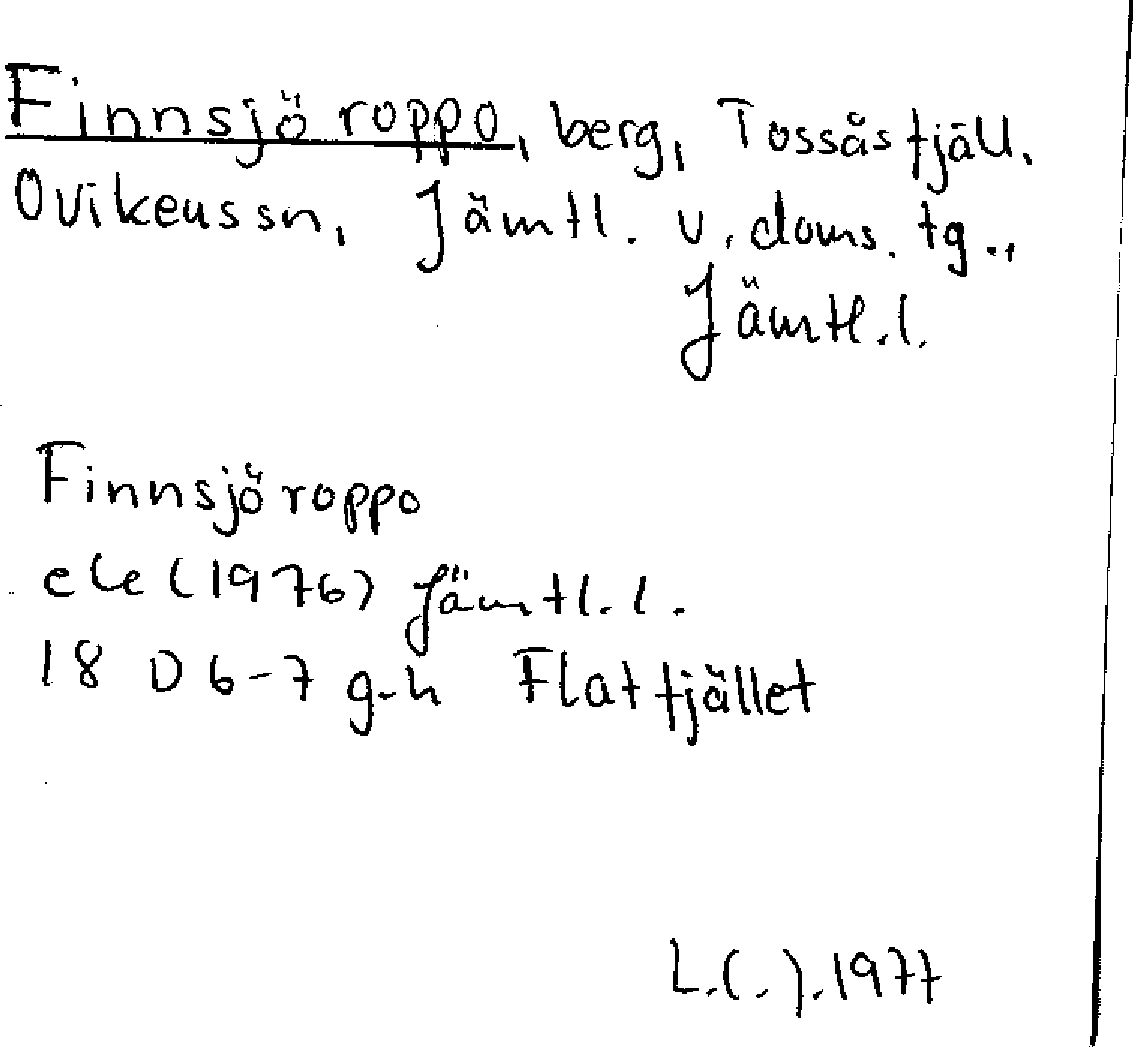 Finnsjöroppo, berg, Tossåsfjäll.
Ovikens sn, Jämtl. v. doms. tg.,
Jämtl.l.
Finnsjöroppo
ek (1976) Jämtl.l.
18 D 6-7 g-h Flatfjället
L.(.).1977